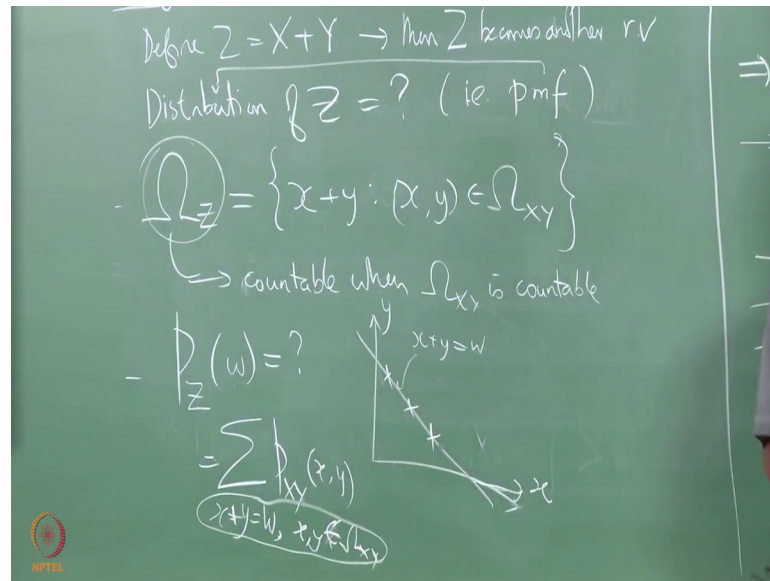 Define Z = X + Y → then Z becomes another r.v
Distribution of Z = ? (i.e. pmf)
- Ω_Z = { x+y : (x, y) ∈ Ω_XY }
→ countable when Ω_XY is countable
- p_Z(w) = ?
y
x+y=w
= Σ p_XY(x, y)
x
x+y=w, x,y ∈ Ω_XY
⇒
NPTEL